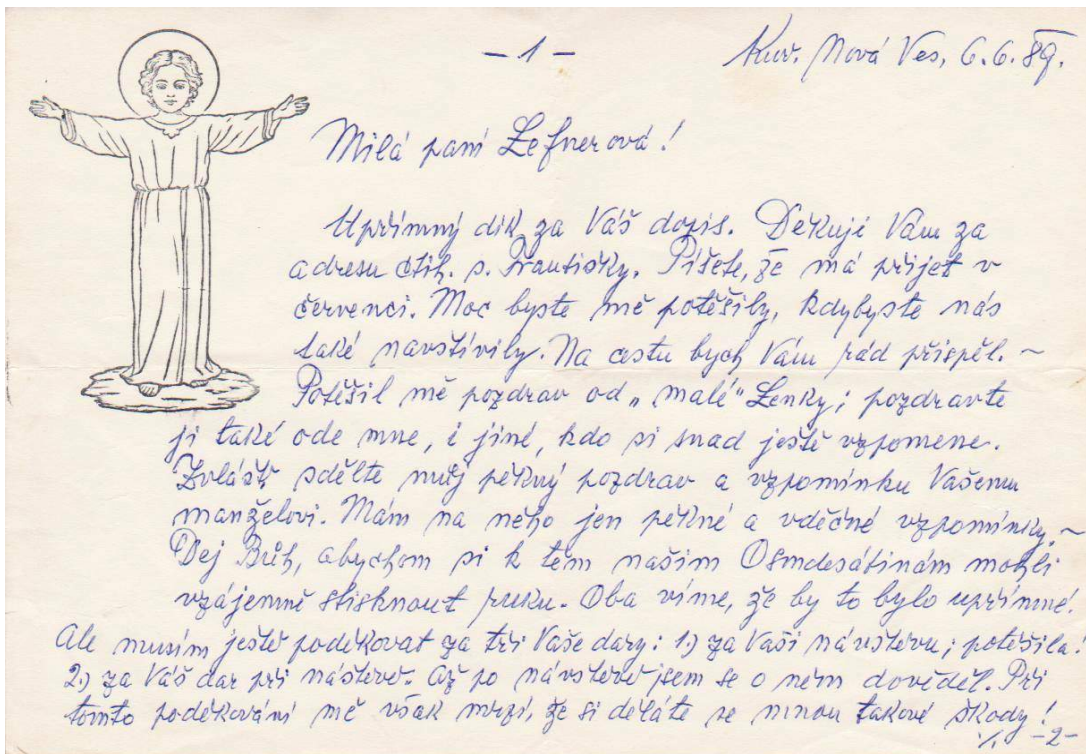 - 1 -
Kunr. Nová Ves, 6.6.89.
Milá paní Lefnerová!
Upřímný dík za Váš dopis. Děkuji Vám za
adresu ctih. s. Františky. Píšete, že má přijet v
červenci. Moc byste mě potěšily, kdybyste nás
také navštívily. Na cestu bych Vám rád přispěl. ~
Potěšil mě pozdrav od „malé“ Lenky; pozdravte
ji také ode mne, i jiné, kdo si snad ještě vzpomene.
Zvlášť sdělte můj pěkný pozdrav a vzpomínku Vašemu
manželovi. Mám na něho jen pěkné a vděčné vzpomínky. ~
Dej Bůh, abychom si k těm našim Osmdesátinám mohli
vzájemně stisknout ruku. Oba víme, že by to bylo upřímné.
Ale musím ještě poděkovat za tři Vaše dary: 1.) za Vaši návštěvu; potěšila!
2.) za Váš dar při nástěvě. Až po návštěvě jsem se o něm dověděl. Při
tomto poděkování mě však mrzí, že si děláte se mnou takové škody!
./. -2-